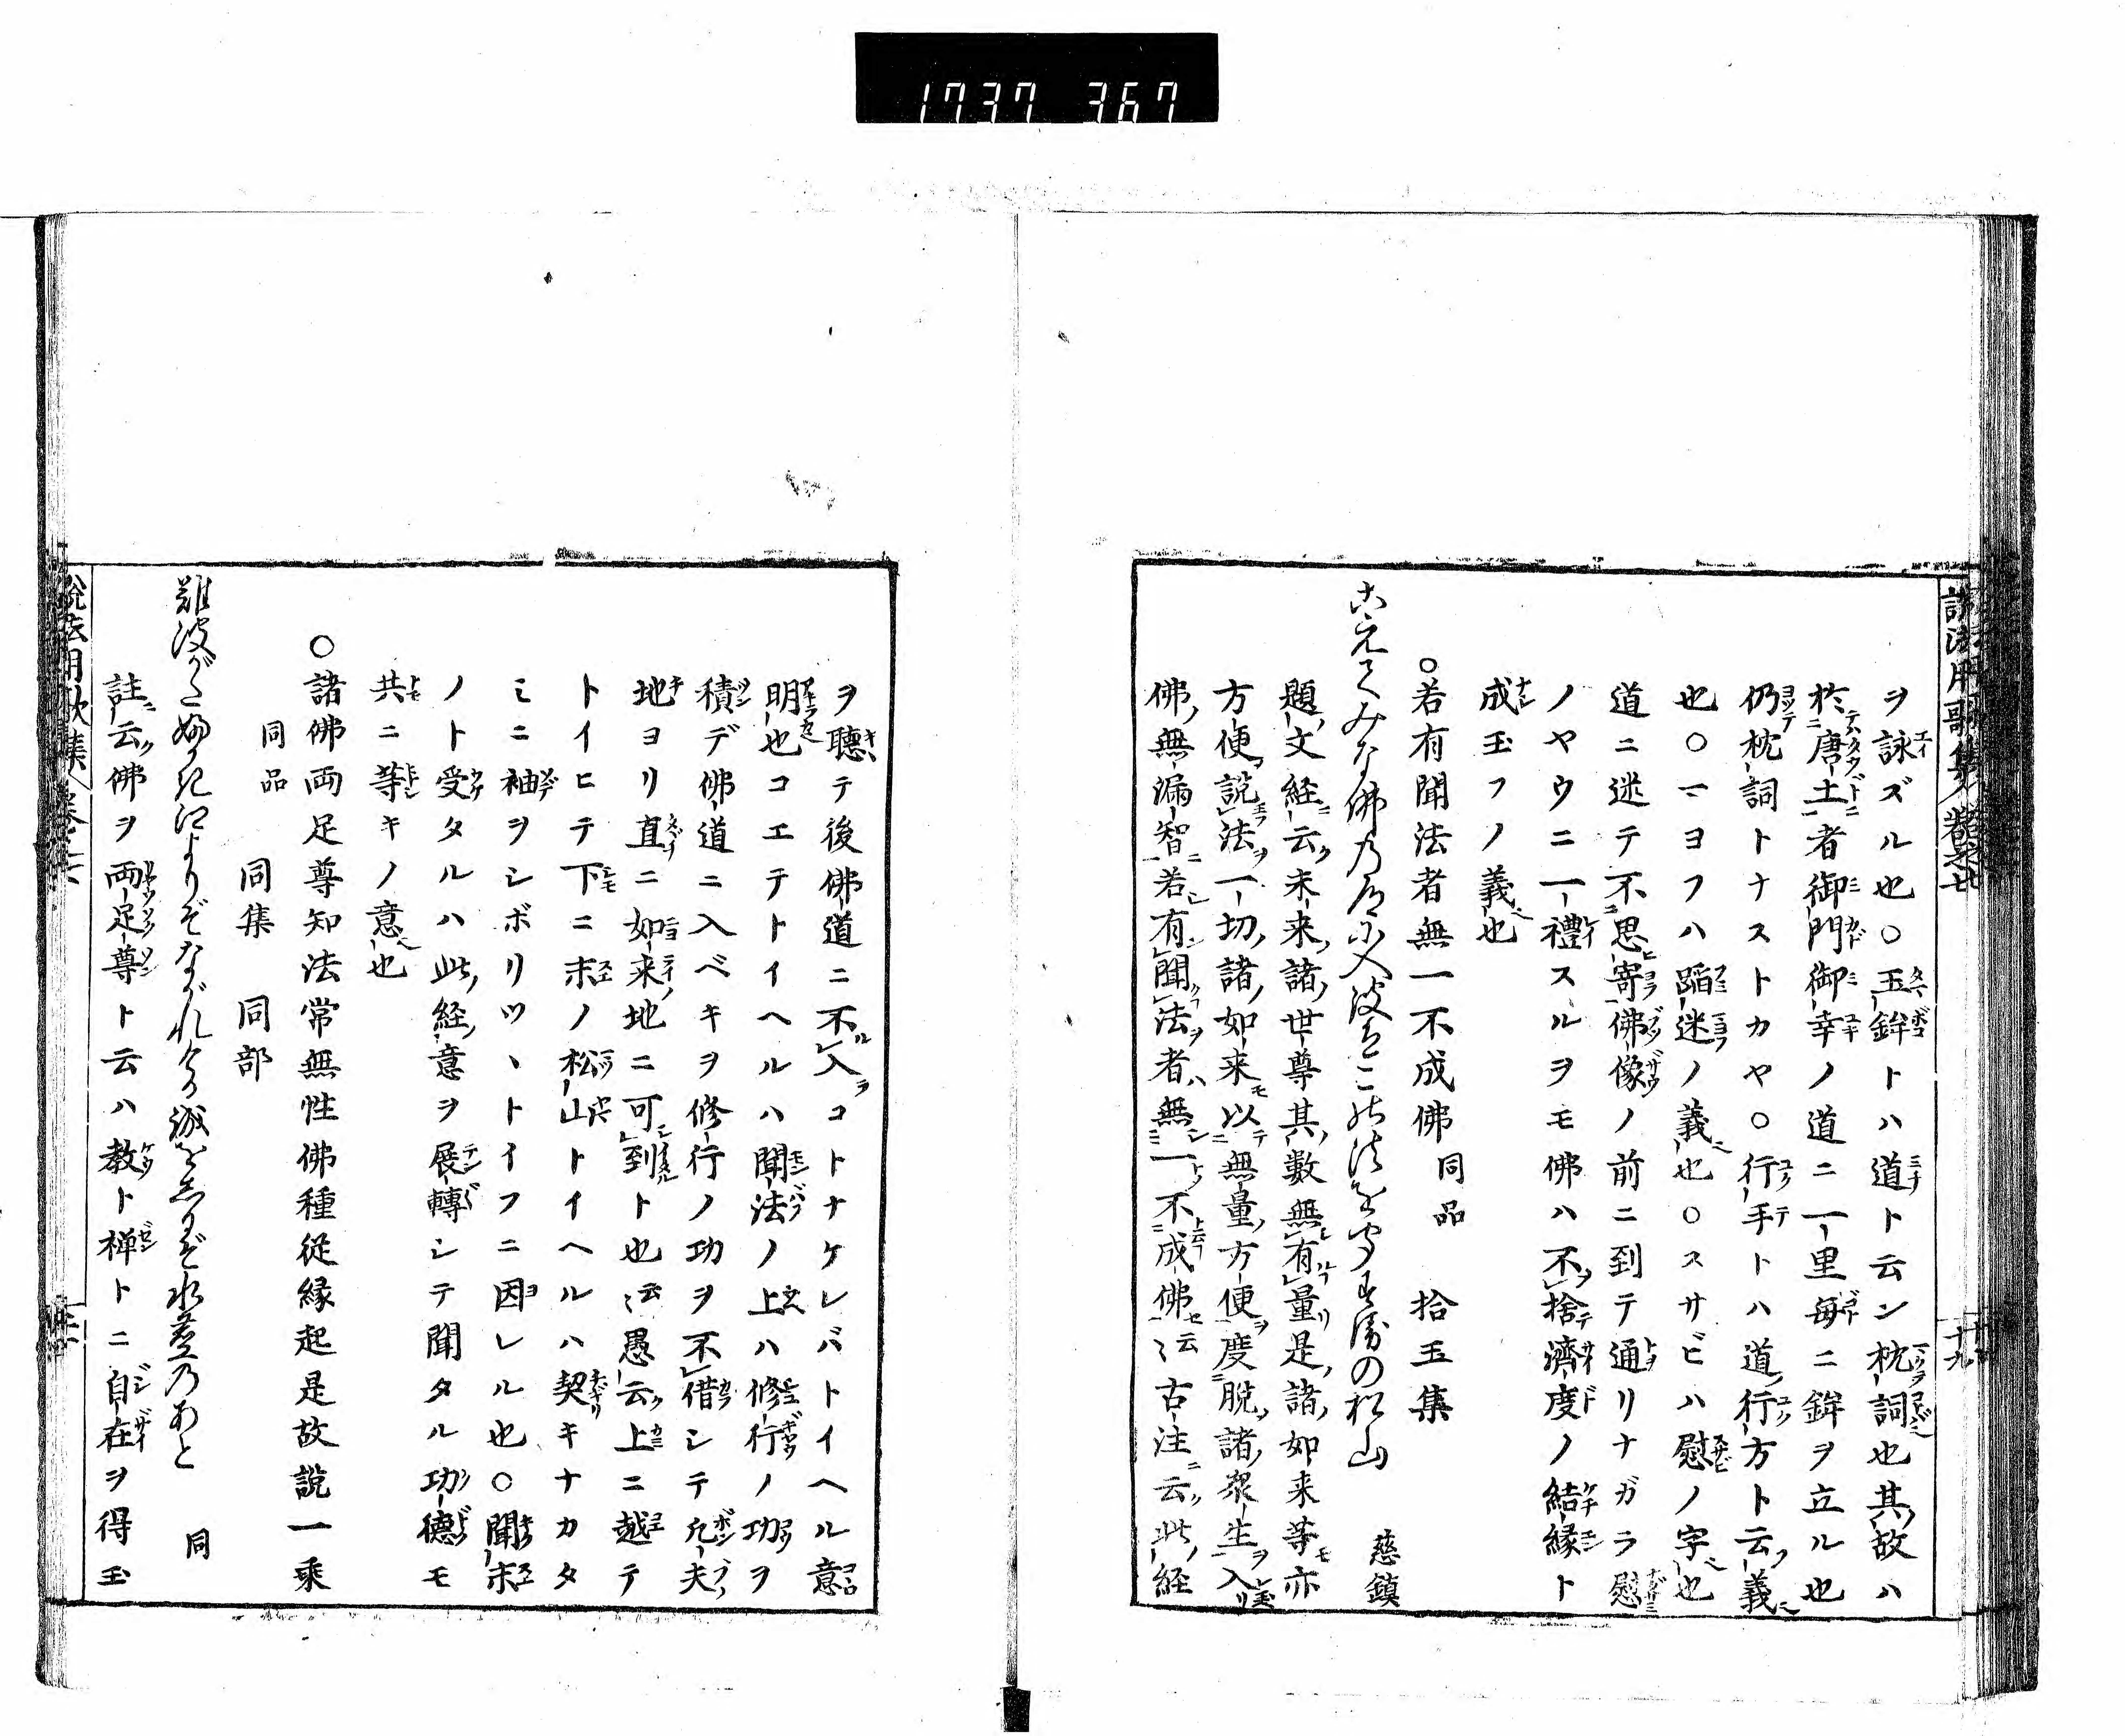 1737 367
説法用歌集 巻之七
十九
ヲ詠ズル也〇玉鉾トハ道ト云ン枕詞也其故ハ
於唐土者御門御幸ノ道ニ一里毎ニ鉾ヲ立ル也
仍枕詞トナストカヤ〇行手トハ道行方ト云義
也〇マヨフハ蹈迷ノ義也〇スサビハ慰ノ字也
道ニ迷テ不思寄佛像ノ前ニ到テ通リナガラ慰
ノヤウニ一禮スルヲモ佛ハ不捨濟度ノ結縁ト
成玉フノ義也
〇若有聞法者無一不成佛 同品 拾玉集
みな佛乃 の松山 慈鎮
題文経云未来諸世尊其數無有量是諸如来等亦
方便説法一切諸如来以無量方便度脱諸衆生入
佛無漏智若有聞法者無一不成佛云〻古注云此経
ヲ聴テ後佛道ニ不入コトナケレバトイヘル意
明也コエテトイヘルハ聞法ノ上ハ修行ノ功ヲ
積デ佛道ニ入ベキヲ修行ノ功ヲ不借シテ凡夫
地ヨリ直ニ如来地ニ可到ト也云〻愚云上ニ越テ
トイヒテ下ニ末ノ松山トイヘルハ契キナカタ
ミニ袖ヲシボリツヽトイフニ因レル也〇聞末
ノト受タルハ此経意ヲ展轉シテ聞タル功德モ
共ニ等キノ意也
〇諸佛両足尊知法常無性佛種従縁起是故説一乘
同品 同集 同部
難波がた よりぞながれ 水茎乃あと 同
註云佛ヲ両足尊ト云ハ教ト禅トニ自在ヲ得玉
説法用歌集 巻之七